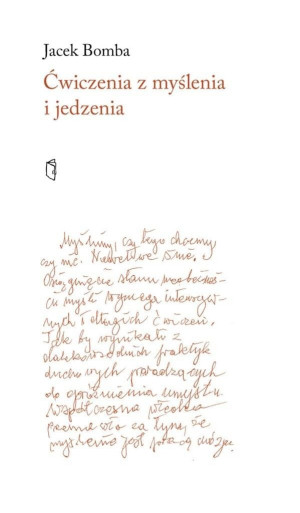 Jacek Bomba
Ćwiczenia z myślenia
i jedzenia
Myślimy, czy tego chcemy
czy nie. Niewątpliwe
Osiągnięcie stanu nieobecnoś-
ci myśli wymaga intensyw-
nych i długich ćwiczeń.
Tak by wynikało z
dalekowschodnich praktyk
duchowych prowadzących
do opróżnienia umysłu.
Współczesna
za tym, że
myślenie jest pracą mózgu.